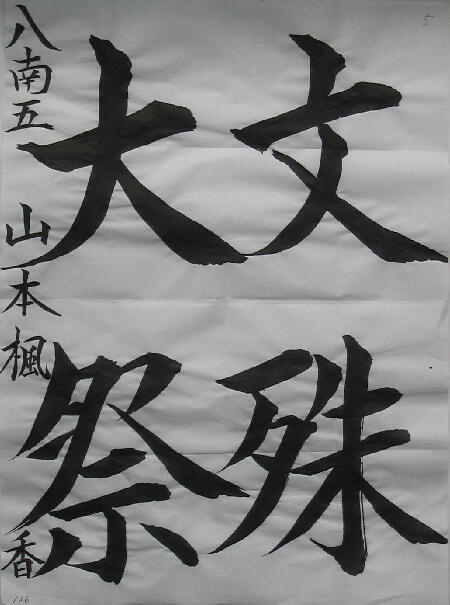 文殊
大祭
八南五 山本楓香
5
126